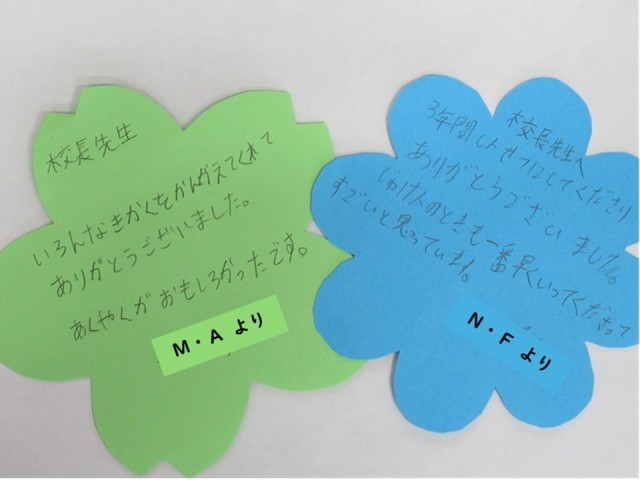 校長先生
いろんなきかくをかんがえてくれて
ありがとうございました。
あくやくがおもしろかったです。
M・A より
校長先生へ
3年間しんせつにしてくださり
ありがとうございました。
じゅけんのときも一番早くいってくださって
すごいと思っています。
N・F より